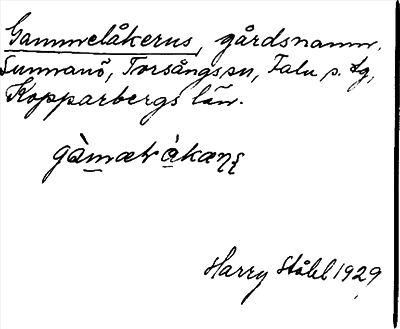 Gammelåkerns, gårdsnamn.
Sunnanö, Torsångs sn, Falu s. tg,
Kopparbergs län.
Harry Ståhl 1929